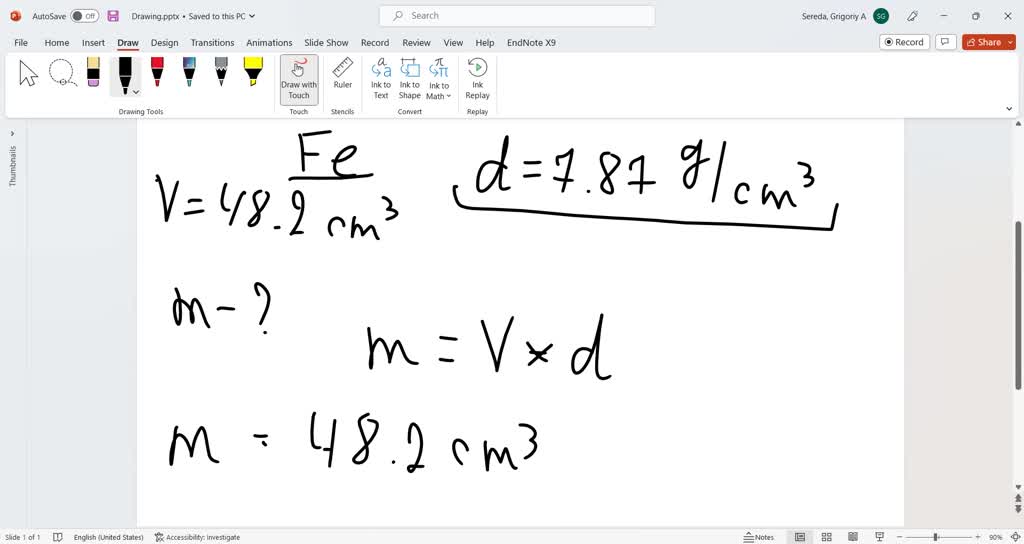 AutoSave Off Drawing.pptx • Saved to this PC Search Sereda, Grigory A SG
File Home Insert Draw Design Transitions Animations Slide Show Record Review View Help EndNote X9 Record Share
Draw with Touch Ruler Ink to Text Ink to Shape Ink to Math Ink Replay
Drawing Tools Touch Stencils Convert Replay
Thumbnails
Fe
V = 48.2 cm³
d = 7.87 g/cm³
m - ?
m = V × d
m = 48.2 cm³
Slide 1 of 1 English (United States) Accessibility: investigate Notes 90%